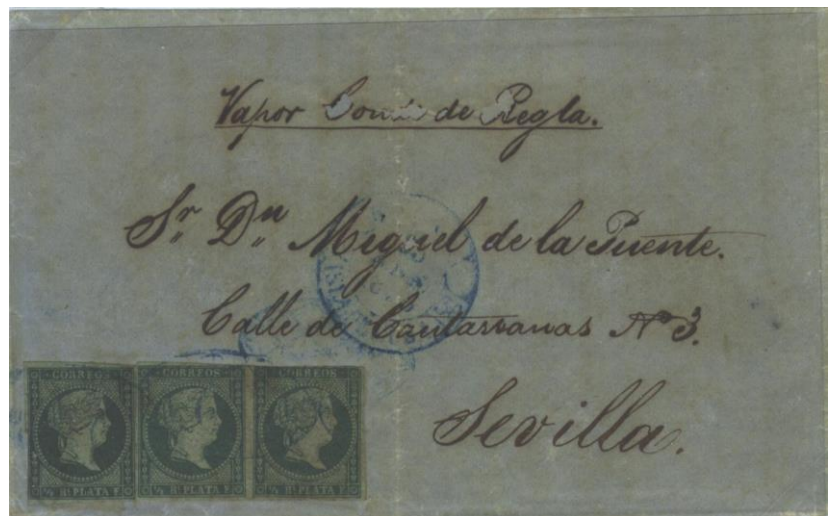 Vapor Conde de Regla.
Sr. Dn. Miguel de la Puente.
Calle de Cantarranas No 3.
Sevilla.
CORREOS CORREOS CORREOS
½ Rl. PLATA F. ½ Rl. PLATA F. ½ Rl. PLATA F.